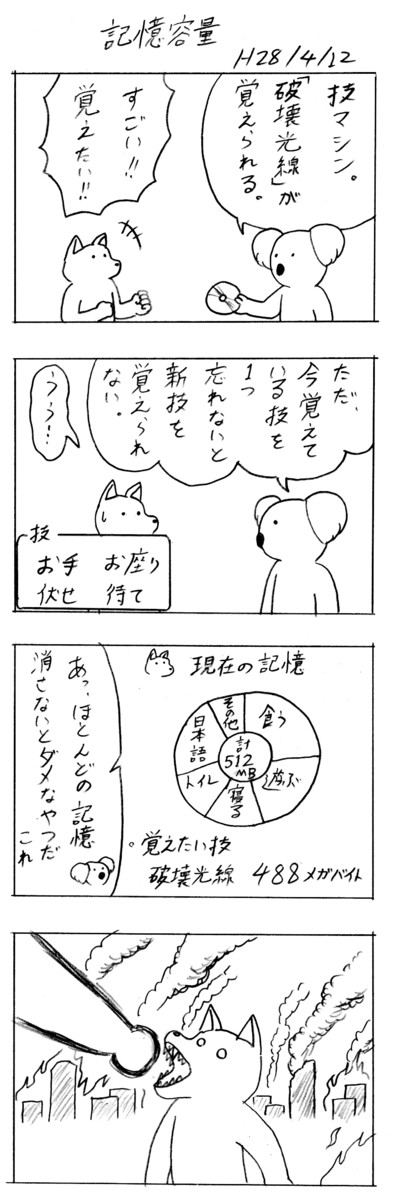 記憶容量
H28/4/12
技マシン。
「破壊光線」が
覚えられる。
すごい!!
覚えたい!!
ただ、
今覚えて
いる技を
1つ
忘れないと
新技を
覚えられ
ない。
うぅ!
技
お手 お座り
伏せ 待て
現在の記憶
食う
遊ぶ
寝る
トイレ
日本語
その他
計
512
MB
。覚えたい技
破壊光線 488メガバイト
あっ、ほとんどの記憶
消さないとダメなやつだ
これ